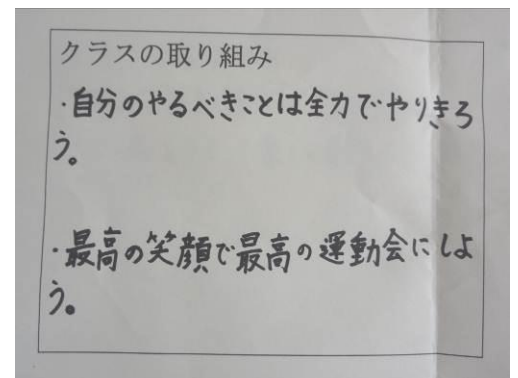 クラスの取り組み
・自分のやるべきことは全力でやりきろ
う。
・最高の笑顔で最高の運動会にしよ
う。